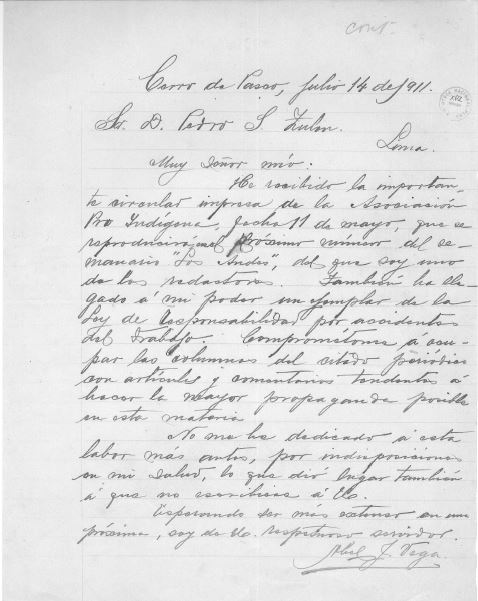 cont.
Cerro de Pasco, julio 14 de 1911.
Sr. D. Pedro S. Zulen.
Lima.
Muy señor mío:
He recibido la importan-
te circular impresa de la Asociación
Pro Indígena, fecha 11 de mayo, que se
reproducirá en el próximo número del se-
manario "Los Andes", del que soy uno
de los redactores. También ha lle-
gado á mi poder un ejemplar de la
Ley de responsabilidad por accidentes
del trabajo. Comprométome á ocu-
par las columnas del citado periódico
con artículos y comentarios tendentes á
hacer la mayor propaganda posible
en esta materia
No me he dedicado á esta
labor más antes, por indisposiciones
en mi salud, lo que dió lugar también
á que no escribiese á Ud.
Esperando ser más extenso en una
próxima, soy de Ud. respetuoso servidor.
Abel J. Vega.